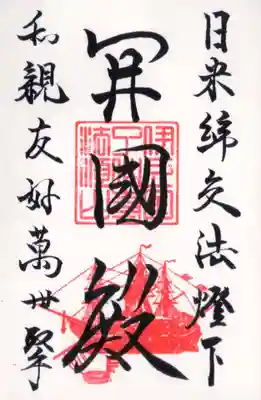 日米締交法燈下
開國殿
和親友好萬世